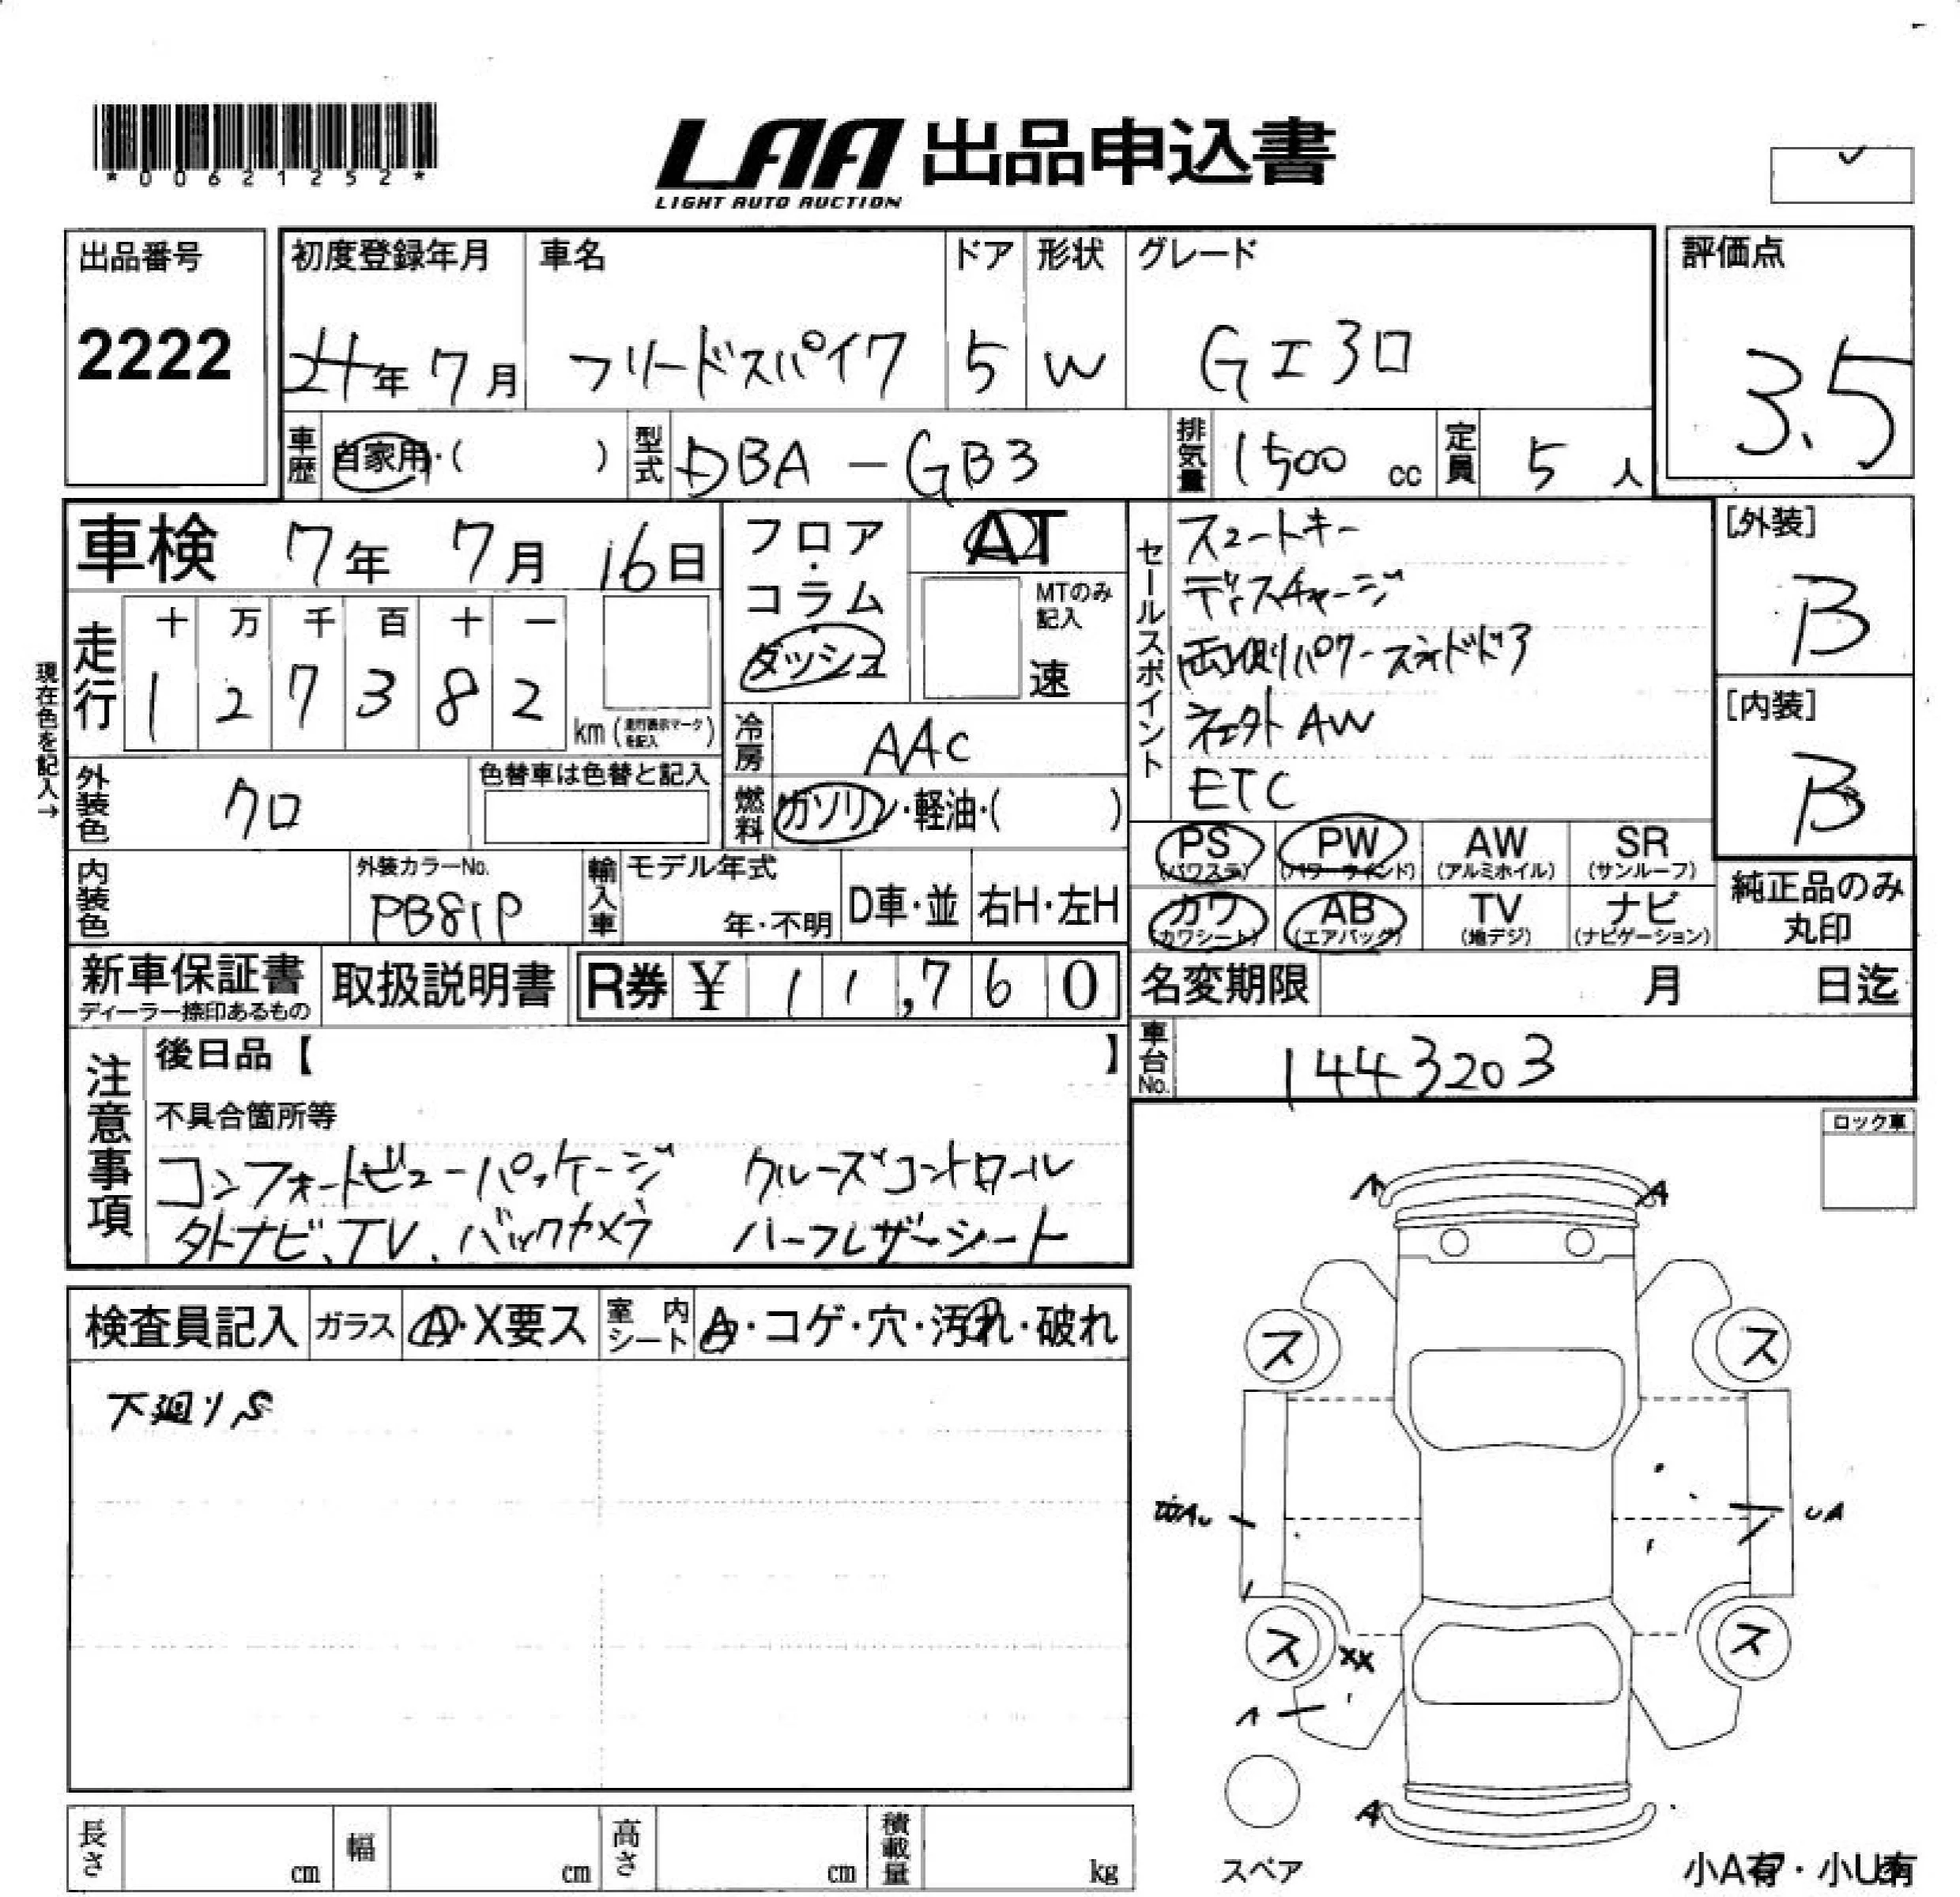 *00621252*
LAA 出品申込書
LIGHT AUTO AUCTION
出品番号
2222
初度登録年月
24年 7月
車名
フリードスパイク
ドア
5
形状
W
グレード
Gエアロ
評価点
3.5
車歴 自家用・( )
型式 DBA-GB3
排気量 1500 cc
定員 5 人
車検 7年 7月 16日
フロア・コラム
ダッシュ
AT
MTのみ記入
速
セールスポイント
スマートキー
ディスチャージ
両側パワースライドドア
社外AW
ETC
[外装]
B
[内装]
B
現在色を記入→
走行
十 万 千 百 十 一
1 2 7 3 8 2
km (走行表示マークを記入)
冷房 AAC
燃料 ガソリン・軽油・( )
外装色 クロ
色替車は色替と記入
PS (パワステ)
PW (パワーウインド)
AW (アルミホイル)
SR (サンルーフ)
カワ (カワシート)
AB (エアバッグ)
TV (地デジ)
ナビ (ナビゲーション)
純正品のみ丸印
内装色
外装カラーNo.
PB81P
輸入車
モデル年式
年・不明
D車・並
右H・左H
新車保証書
ディーラー捺印あるもの
取扱説明書
R券 ¥ 11,760
名変期限 月 日迄
車台No. 1443203
注意事項
後日品【 】
不具合箇所等
コンフォートビューパッケージ クルーズコントロール
外ナビ、TV、バックカメラ ハーフレザーシート
ロック車
検査員記入
ガラス A・X要ス
室内シート A・コゲ・穴・汚れ・破れ
下廻りS
A A
ス ス
UA
ス ス
XX
A
A
スペア
長さ cm
幅 cm
高さ cm
積載量 kg
小A有・小U有